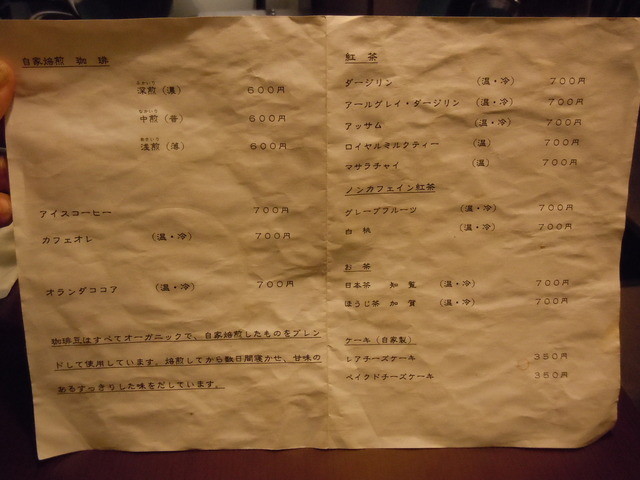 自家焙煎 珈琲
ふかいり
深煎（濃） 600円
なかいり
中煎（普） 600円
あさいり
浅煎（薄） 600円
アイスコーヒー 700円
カフェオレ （温・冷） 700円
オランダココア （温・冷） 700円
珈琲豆はすべてオーガニックで、自家焙煎したものをブレン
ドして使用しています。焙煎してから数日間寝かせ、甘味の
あるすっきりした味をだしています。
紅茶
ダージリン （温・冷） 700円
アールグレイ・ダージリン （温・冷） 700円
アッサム （温・冷） 700円
ロイヤルミルクティー （温） 700円
マサラチャイ （温） 700円
ノンカフェイン紅茶
グレープフルーツ （温・冷） 700円
白桃 （温・冷） 700円
お茶
日本茶 知覧 （温・冷） 700円
ほうじ茶 加賀 （温・冷） 700円
ケーキ（自家製）
レアチーズケーキ 350円
ベイクドチーズケーキ 350円